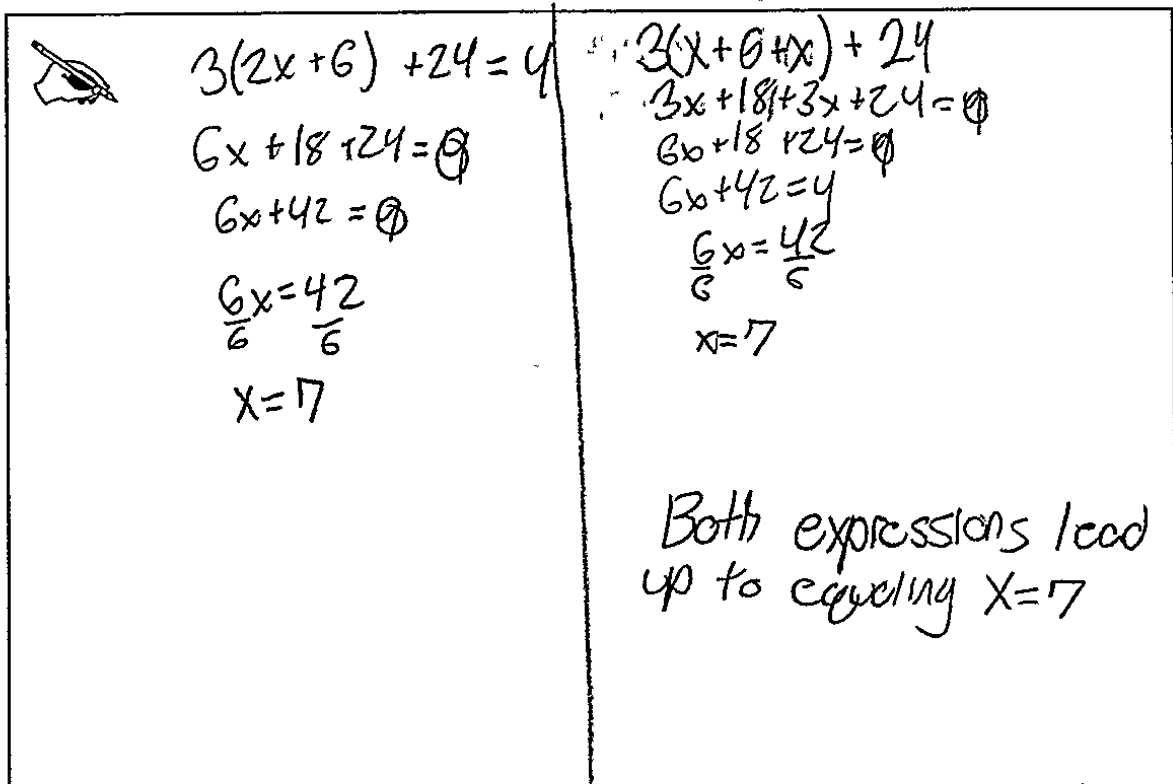 3(2x+6) +24=y
6x+18+24=
6x+42=
6/6 x=42/6
x=7
3(x+6+x)+24
3x+18+3x+24=
6x+18+24=
6x+42=y
6/6 x=42/6
x=7
Both expressions lead
up to equeling X=7